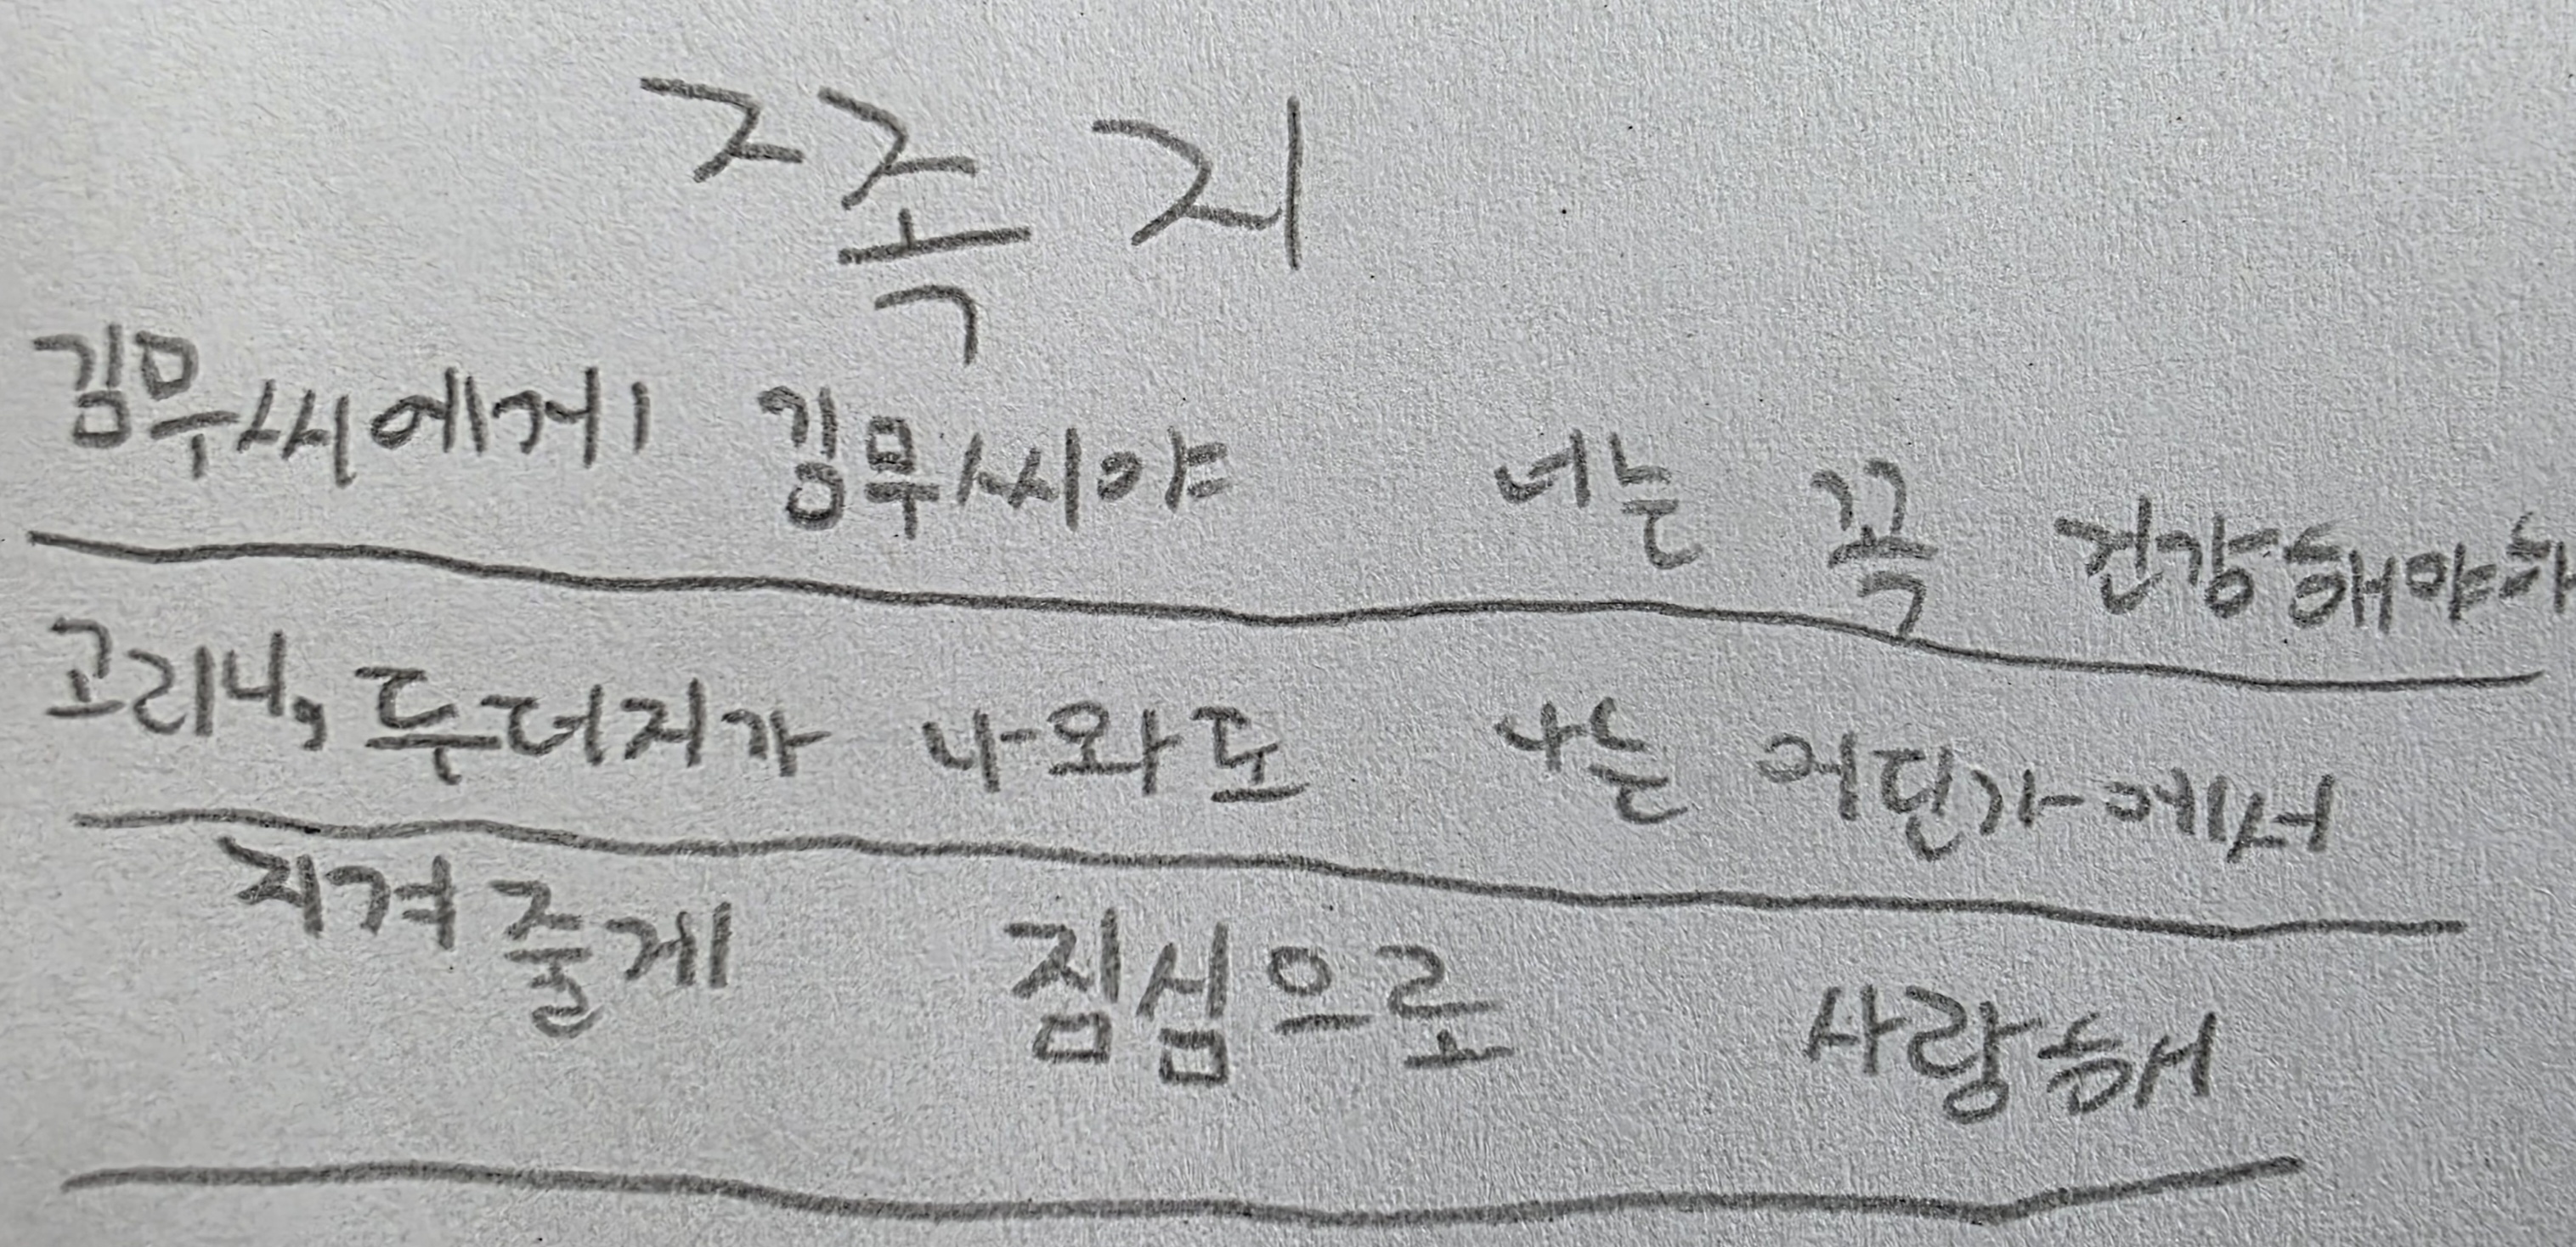 쪽지
김무씨에게 김무씨야 너는 꼭 건강해야해
고리니, 두더지가 나와도 나는 어딘가에서
지겨줄게 짐심으로 사랑해